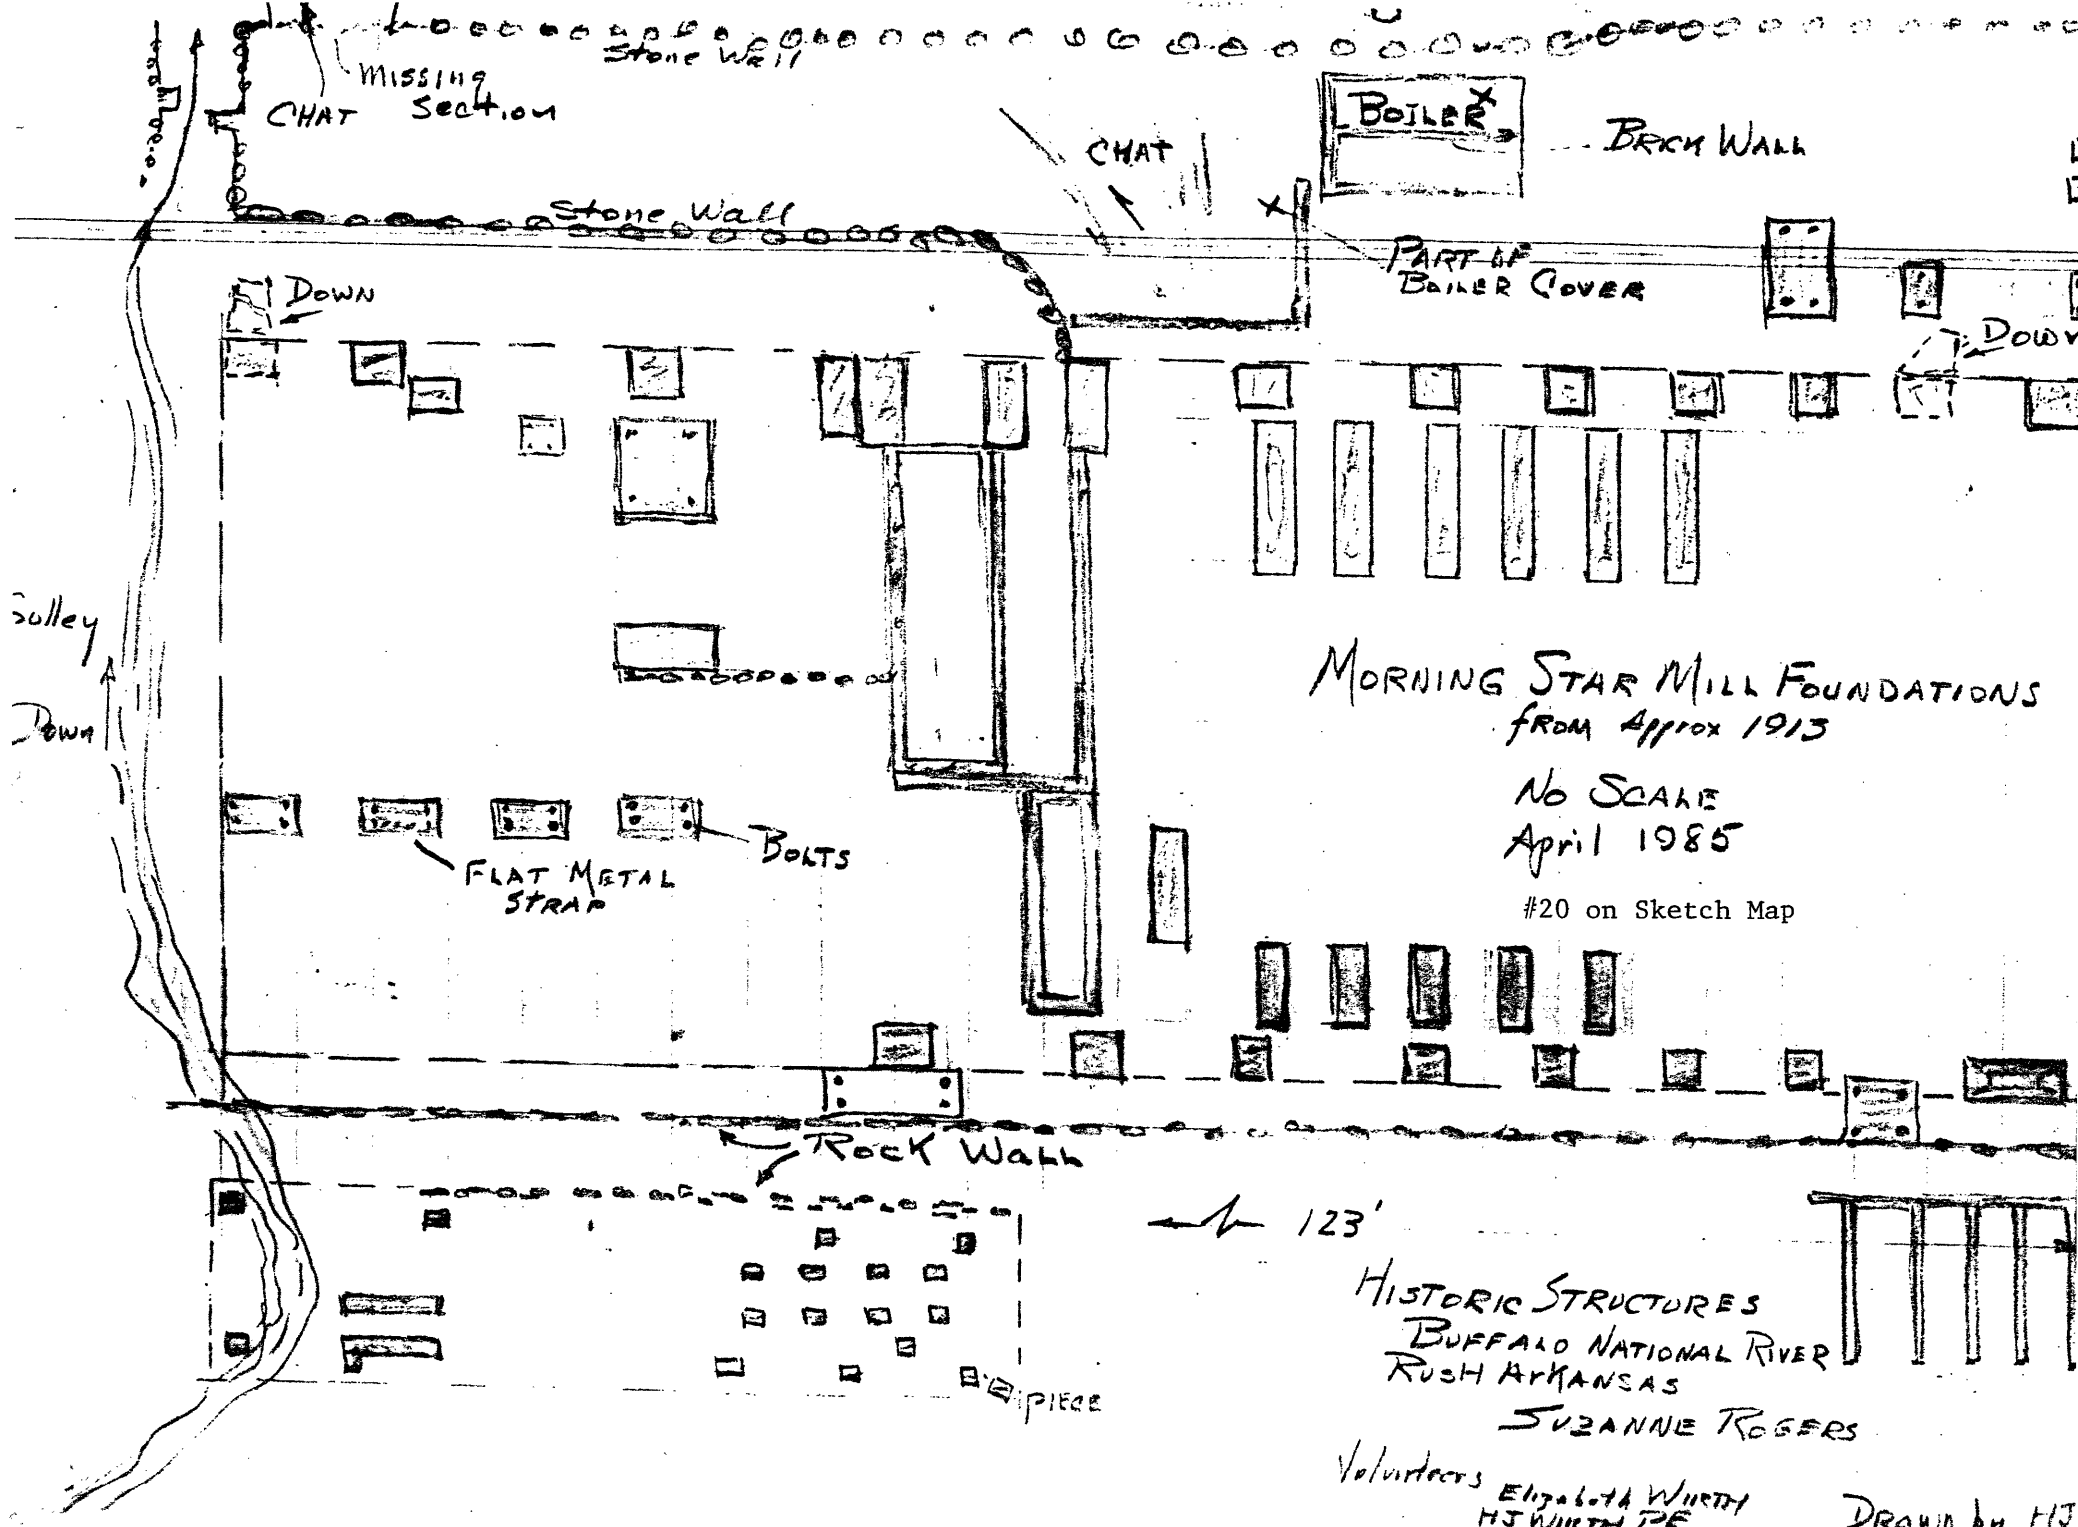 Stone Wall
Missing
Section
CHAT
BOILER
BRICK WALL
CHAT
Stone Wall
PART OF
BOILER COVER
DOWN
DOWN
Gulley
Down
MORNING STAR MILL FOUNDATIONS
FROM Approx 1913
NO SCALE
April 1985
#20 on Sketch Map
BOLTS
FLAT METAL
STRAP
ROCK WALL
123'
HISTORIC STRUCTURES
BUFFALO NATIONAL RIVER
RUSH ARKANSAS
SUZANNE ROGERS
PIECE
Volunteers
Elizabeth WIRTH
HJ WIRTH PE
DRAWN by HJ